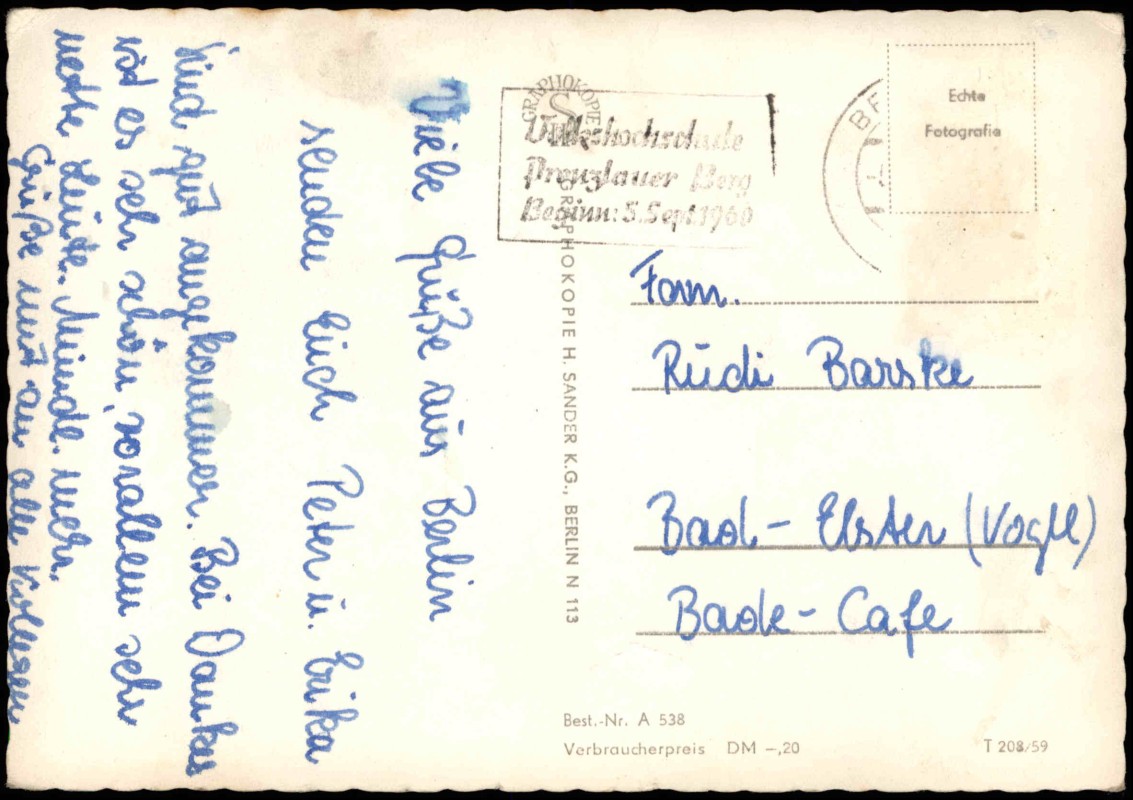 Viele Grüße aus Berlin
senden Euch Peter u. Erika
Sind gut angekommen. Bei Dankes
ist es sehr schön, vorallem sehr
nette Leute. Mündl. mehr.
Grüße und an alle Kollegen
GRAPHOKOPIE
Volkshochschule
Prenzlauer Berg
Beginn: 5. Sept. 1960
GRAPHOKOPIE H. SANDER K.G., BERLIN N 113
BE
Echte
Fotografie
Fam.
Rudi Barske
Bad-Elster (Vogtl)
Bade-Cafe
Best.-Nr. A 538
Verbraucherpreis DM -,20
T 208/59